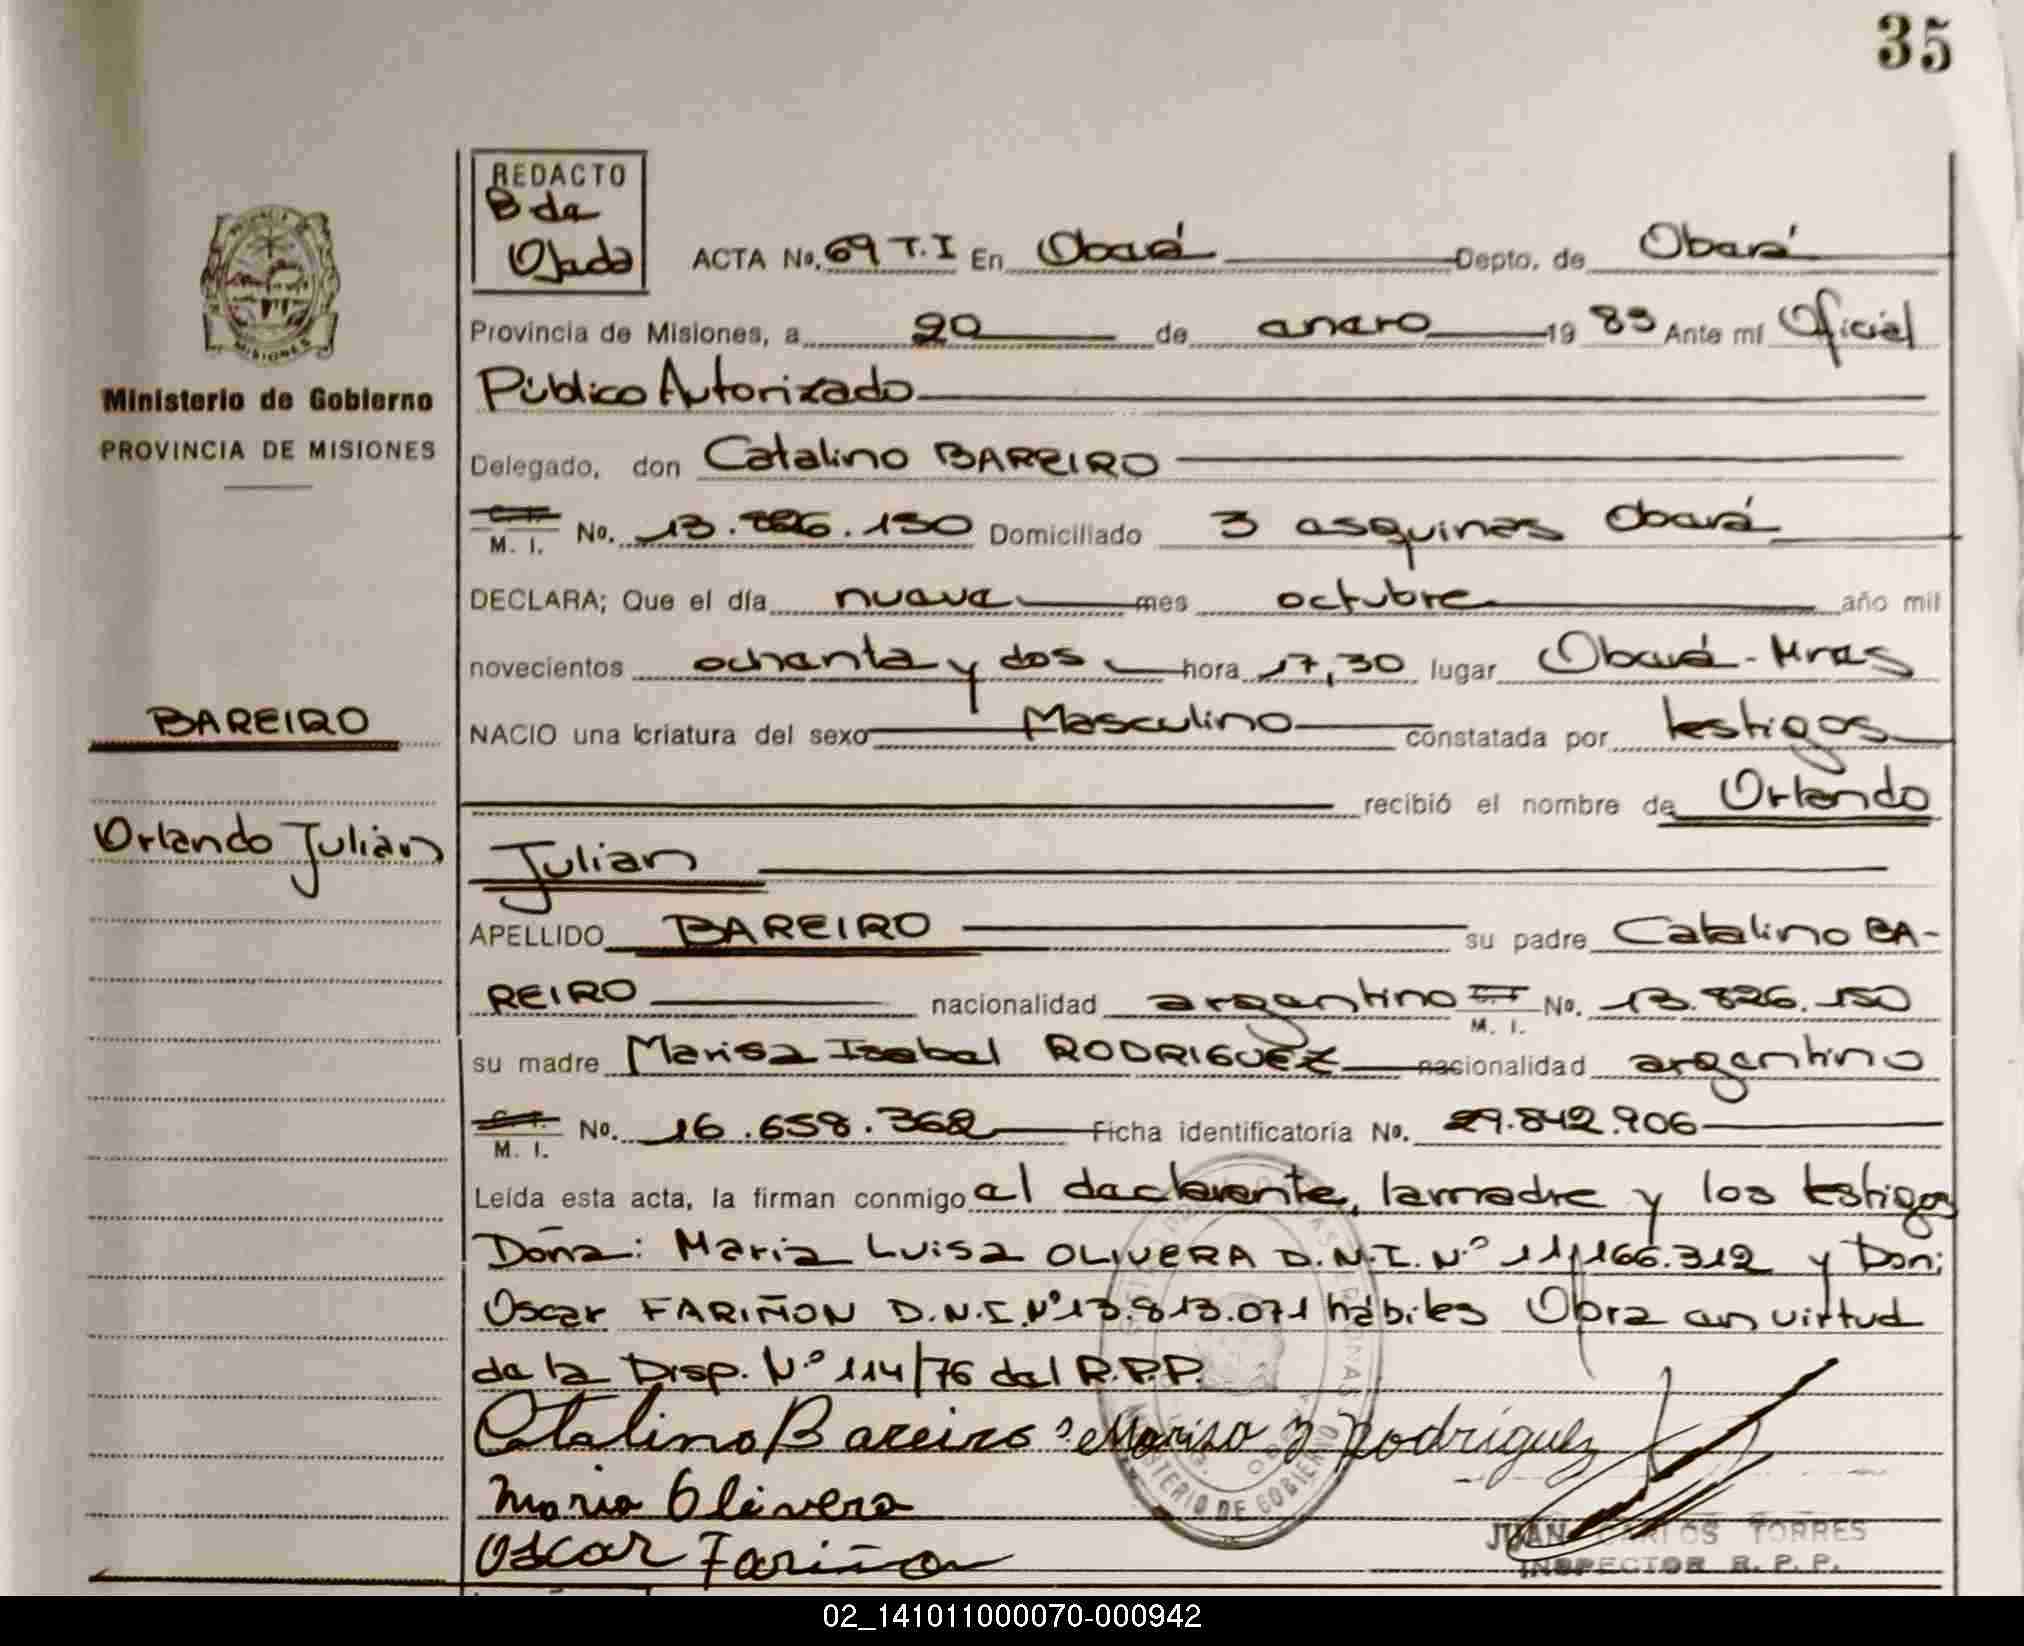 35
REDACTO
B de
Ojeda
ACTA No. 69 T.I En Oberá Depto. de Oberá
Provincia de Misiones, a 20 de enero 1983 Ante mí Oficial
Público Autorizado
Delegado, don Catalino BAREIRO
C. I. M. I. No. 13.826.150 Domiciliado 3 esquinas Oberá
DECLARA; Que el día nueve mes octubre año mil
novecientos ochenta y dos hora 17,30 lugar Oberá - Mnes
NACIO una criatura del sexo Masculino constatada por testigos
recibió el nombre de Orlando
Julian
APELLIDO BAREIRO su padre Catalino BA-
REIRO nacionalidad argentino C. I. M. I. No. 13.826.150
su madre Marisa Isabel RODRIGUEZ nacionalidad argentino
C. I. M. I. No. 16.658.362 Ficha identificatoria No. 29.842.906
Leída esta acta, la firman conmigo el declarante, la madre y los testigos
Doña: Maria Luisa OLIVERA D.N.I. Nº 11,166.312 y Don:
Oscar FARIÑON D.N.I. Nº 13.813.071 hábiles Obra en virtud
de la Disp. Nº 114/76 del R.P.P.
Catalino Bareiro Marisa I Rodriguez
Maria Olivera
Oscar Fariñon
JUAN CARLOS TORRES
INSPECTOR R. P. P.
MINISTERIO DE GOBIERNO
OBERA
MISIONES
Ministerio de Gobierno
PROVINCIA DE MISIONES
BAREIRO
Orlando Julian
02_141011000070-000942